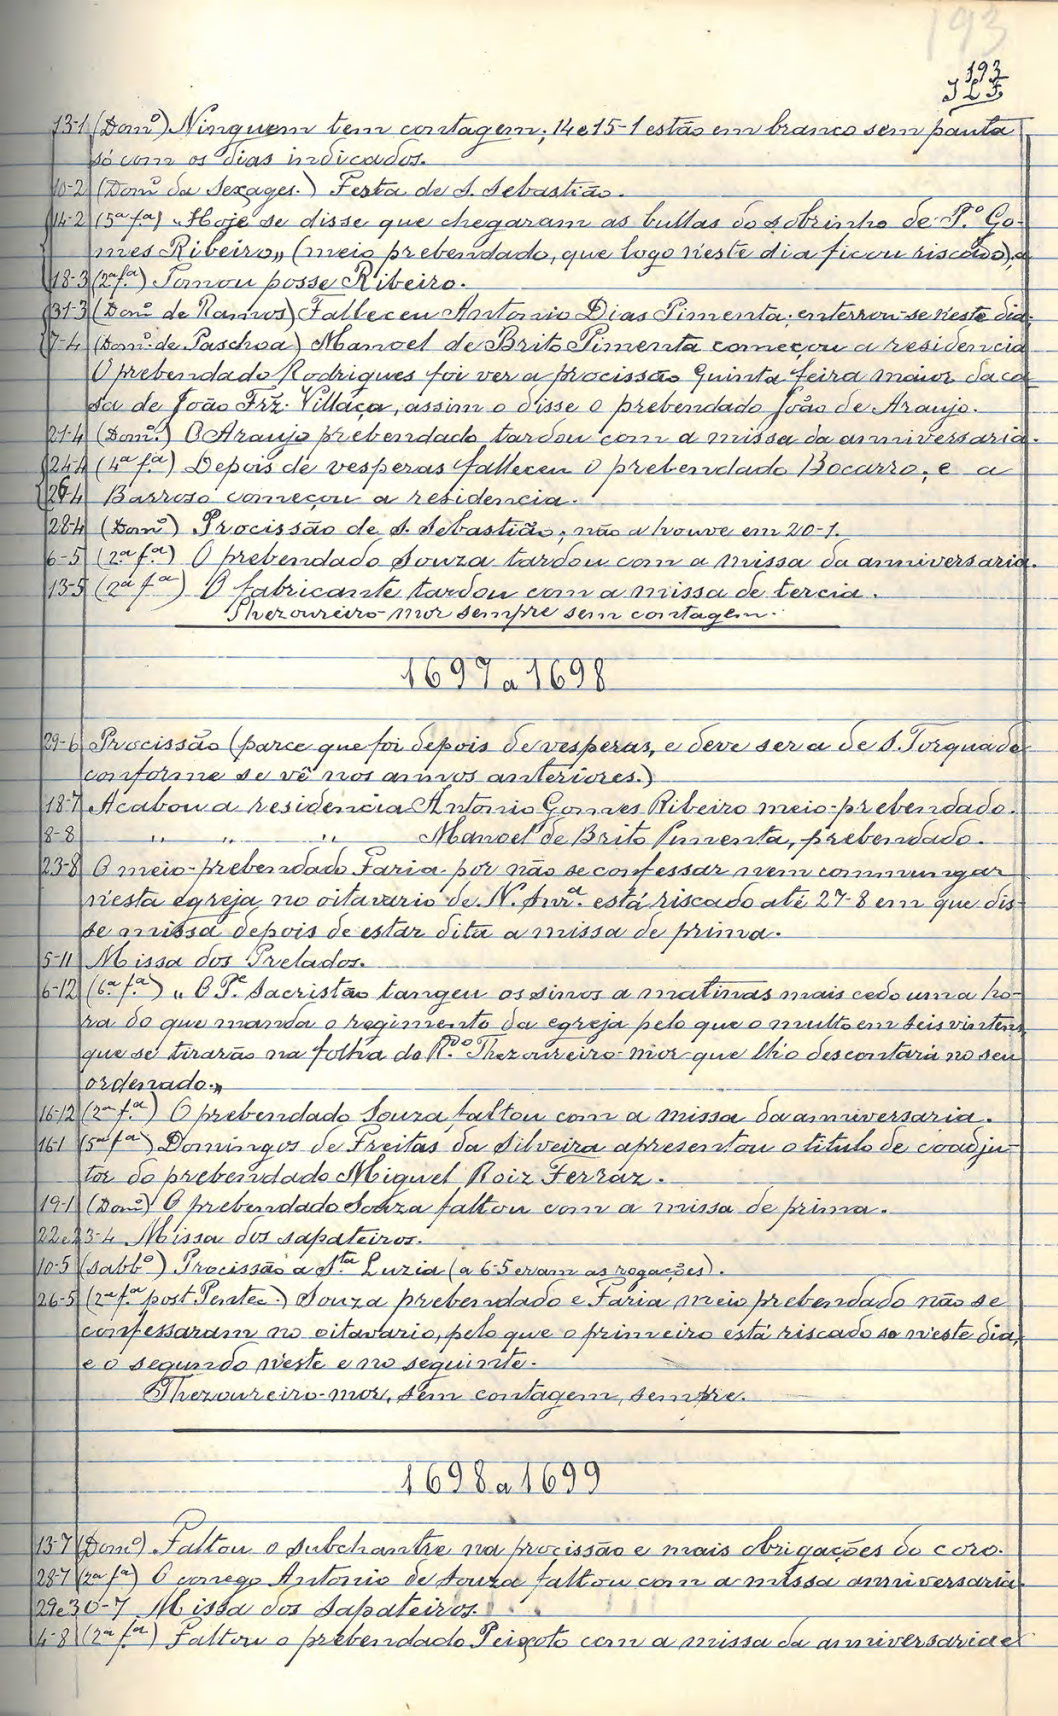 193
193
J L F
13-1 (Domº) Ninguem tem contagem; 14 e 15-1 estão em branco sem pauta
só com os dias indicados.
10-2 (Domº da Sexages.) Festa de S. Sebastião.
14-2 (5ª fª) „Hoje se disse que chegaram as bullas do sobrinho de P.º Go-
mes Ribeiro„ (meio prebendado, que logo n'este dia ficou riscado), e
18-3 (2ª f.ª) Tomou posse Ribeiro.
31-3 (Domº de Ramos) Falleceu Antonio Dias Pimenta; enterrou-se n'este dia.
7-4 (Domº de Paschoa) Manoel de Brito Pimenta começou a residencia
O prebendado Rodrigues foi ver a procissão Quinta feira maior da ca-
sa de João Frz. Villaça, assim o disse o prebendado João de Araujo.
21-4 (Domº.) O Araujo prebendado tardou com a missa da anniversaria.
24-4 (4ª f.ª) Depois de vesperas falleceu o prebendado Bocarro; e a
26-4 Barroso começou a residencia.
28-4 (Domº) Procissão de S. Sebastião; não a houve em 20-1.
6-5 (2.ª f.ª) O prebendado Souza tardou com a missa da anniversaria.
13-5 (2ª fª) O fabricante tardou com a missa de tercia.
Thezoureiro-mor sempre sem contagem.
1697 a 1698
29-6 Procissão (parce que foi depois de vesperas, e deve ser a de S. Torquade
conforme se vê nos annos anteriores.)
18-7 Acabou a residencia Antonio Gomes Ribeiro meio-prebendado.
8-8 „ „ „ Manoel de Brito Pimenta, prebendado.
23-8 O meio-prebendado Faria por não se confessar nem commungar
n'esta egreja no oitavario de N. Snrª. está riscado até 27-8 em que dis-
se missa depois de estar dita a missa de prima.
5-11 Missa dos Prelados.
6-12 (6ª. f.ª) „ O P.e Sacristão tangeu os sinos a matinas mais cedo uma ho-
ra do que manda o regimento da egreja pelo que o multo em seis vintens,
que se tirarão na folha do R.do Thezoureiro-mor que lh'o descontará no seu
ordenado.„
16-12 (2ª f.ª) O prebendado Souza faltou com a missa da anniversaria.
16-1 (5ª fª) Domingos de Freitas da Silveira apresentou o titulo de coadju-
tor do prebendado Miguel Roiz Ferraz.
19-1 (Domº) O prebendado Souza faltou com a missa de prima.
22 e 23-4 Missa dos sapateiros.
10-5 (sabbº) Procissão a S.ta Luzia (a 6-5 eram as rogações).
26-5 (2ª f.ª post Pentec.) Souza prebendado e Faria meio prebendado não se
confessaram no oitavario, pelo que o primeiro está riscado so n'este dia,
e o segundo n'este e no seguinte.
Thezoureiro-mor, sem contagem, sempre.
1698 a 1699
13-7 (Domº) Faltou o subchantre na procissão e mais obrigações do coro.
28-7 (2ª fª) O conego Antonio de Souza faltou com a missa anniversaria.
29 e 30-7 Missa dos Sapateiros.
4-8 (2ª f.ª) Faltou o prebendado Peixoto com a missa da anniversaria e